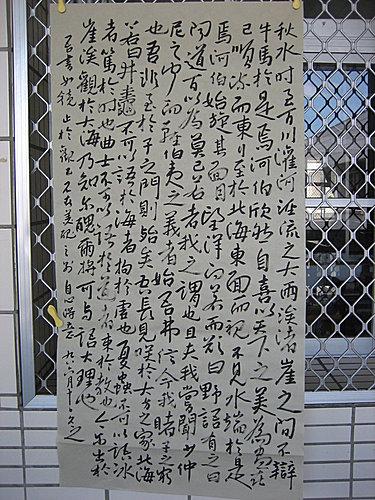 秋水時至百川灌河涇流之大兩涘渚崖之間不辯
牛馬於是焉河伯欣然自喜以天下之美為盡在
己順流而東行至於北海東面而視不見水端於是
焉河伯始旋其面目望洋向若而歎曰野語有之曰
聞道百以為莫己若者我之謂也且夫我嘗聞少仲
尼之聞而輕伯夷之義者始吾弗信今我睹子之難窮
也吾非至於子之門則殆矣吾長見笑於大方之家北海
若曰井鼃不可以語於海者拘於虛也夏蟲不可以語冰
者篤於時也曲士不可以語於道者束於教也今爾出於
崖涘觀於大海乃知爾醜爾將可與語大理也
吾書如鏡止於觀